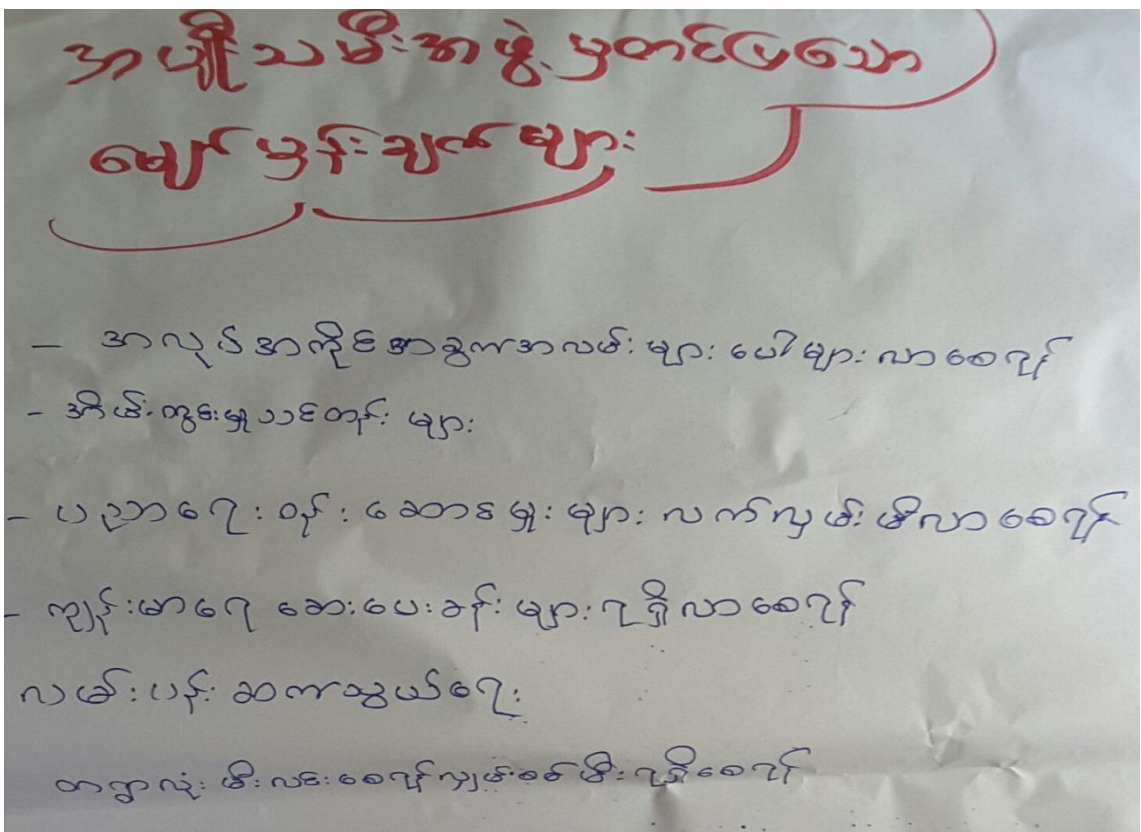 အမျိုးသမီးအဖွဲ့မှတင်ပြသော
မျှော်မှန်းချက်များ
- အလုပ်အကိုင်အခွင့်အလမ်းများပေါများလာစေရန်
- အိမ်တွင်းမှုသင်တန်းများ
- ပညာရေးဝန်ဆောင်မှုးများလက်လှမ်းမှီလာစေရန်
- ကျန်းမာရေဆေးပေးခန်းများရရှိလာစေရန်
လမ်းပန်းဆက်သွယ်ရေး
တရွာလုံးမီးလင်းစေရန်လျှပ်စစ်မီးရရှိစေရန်